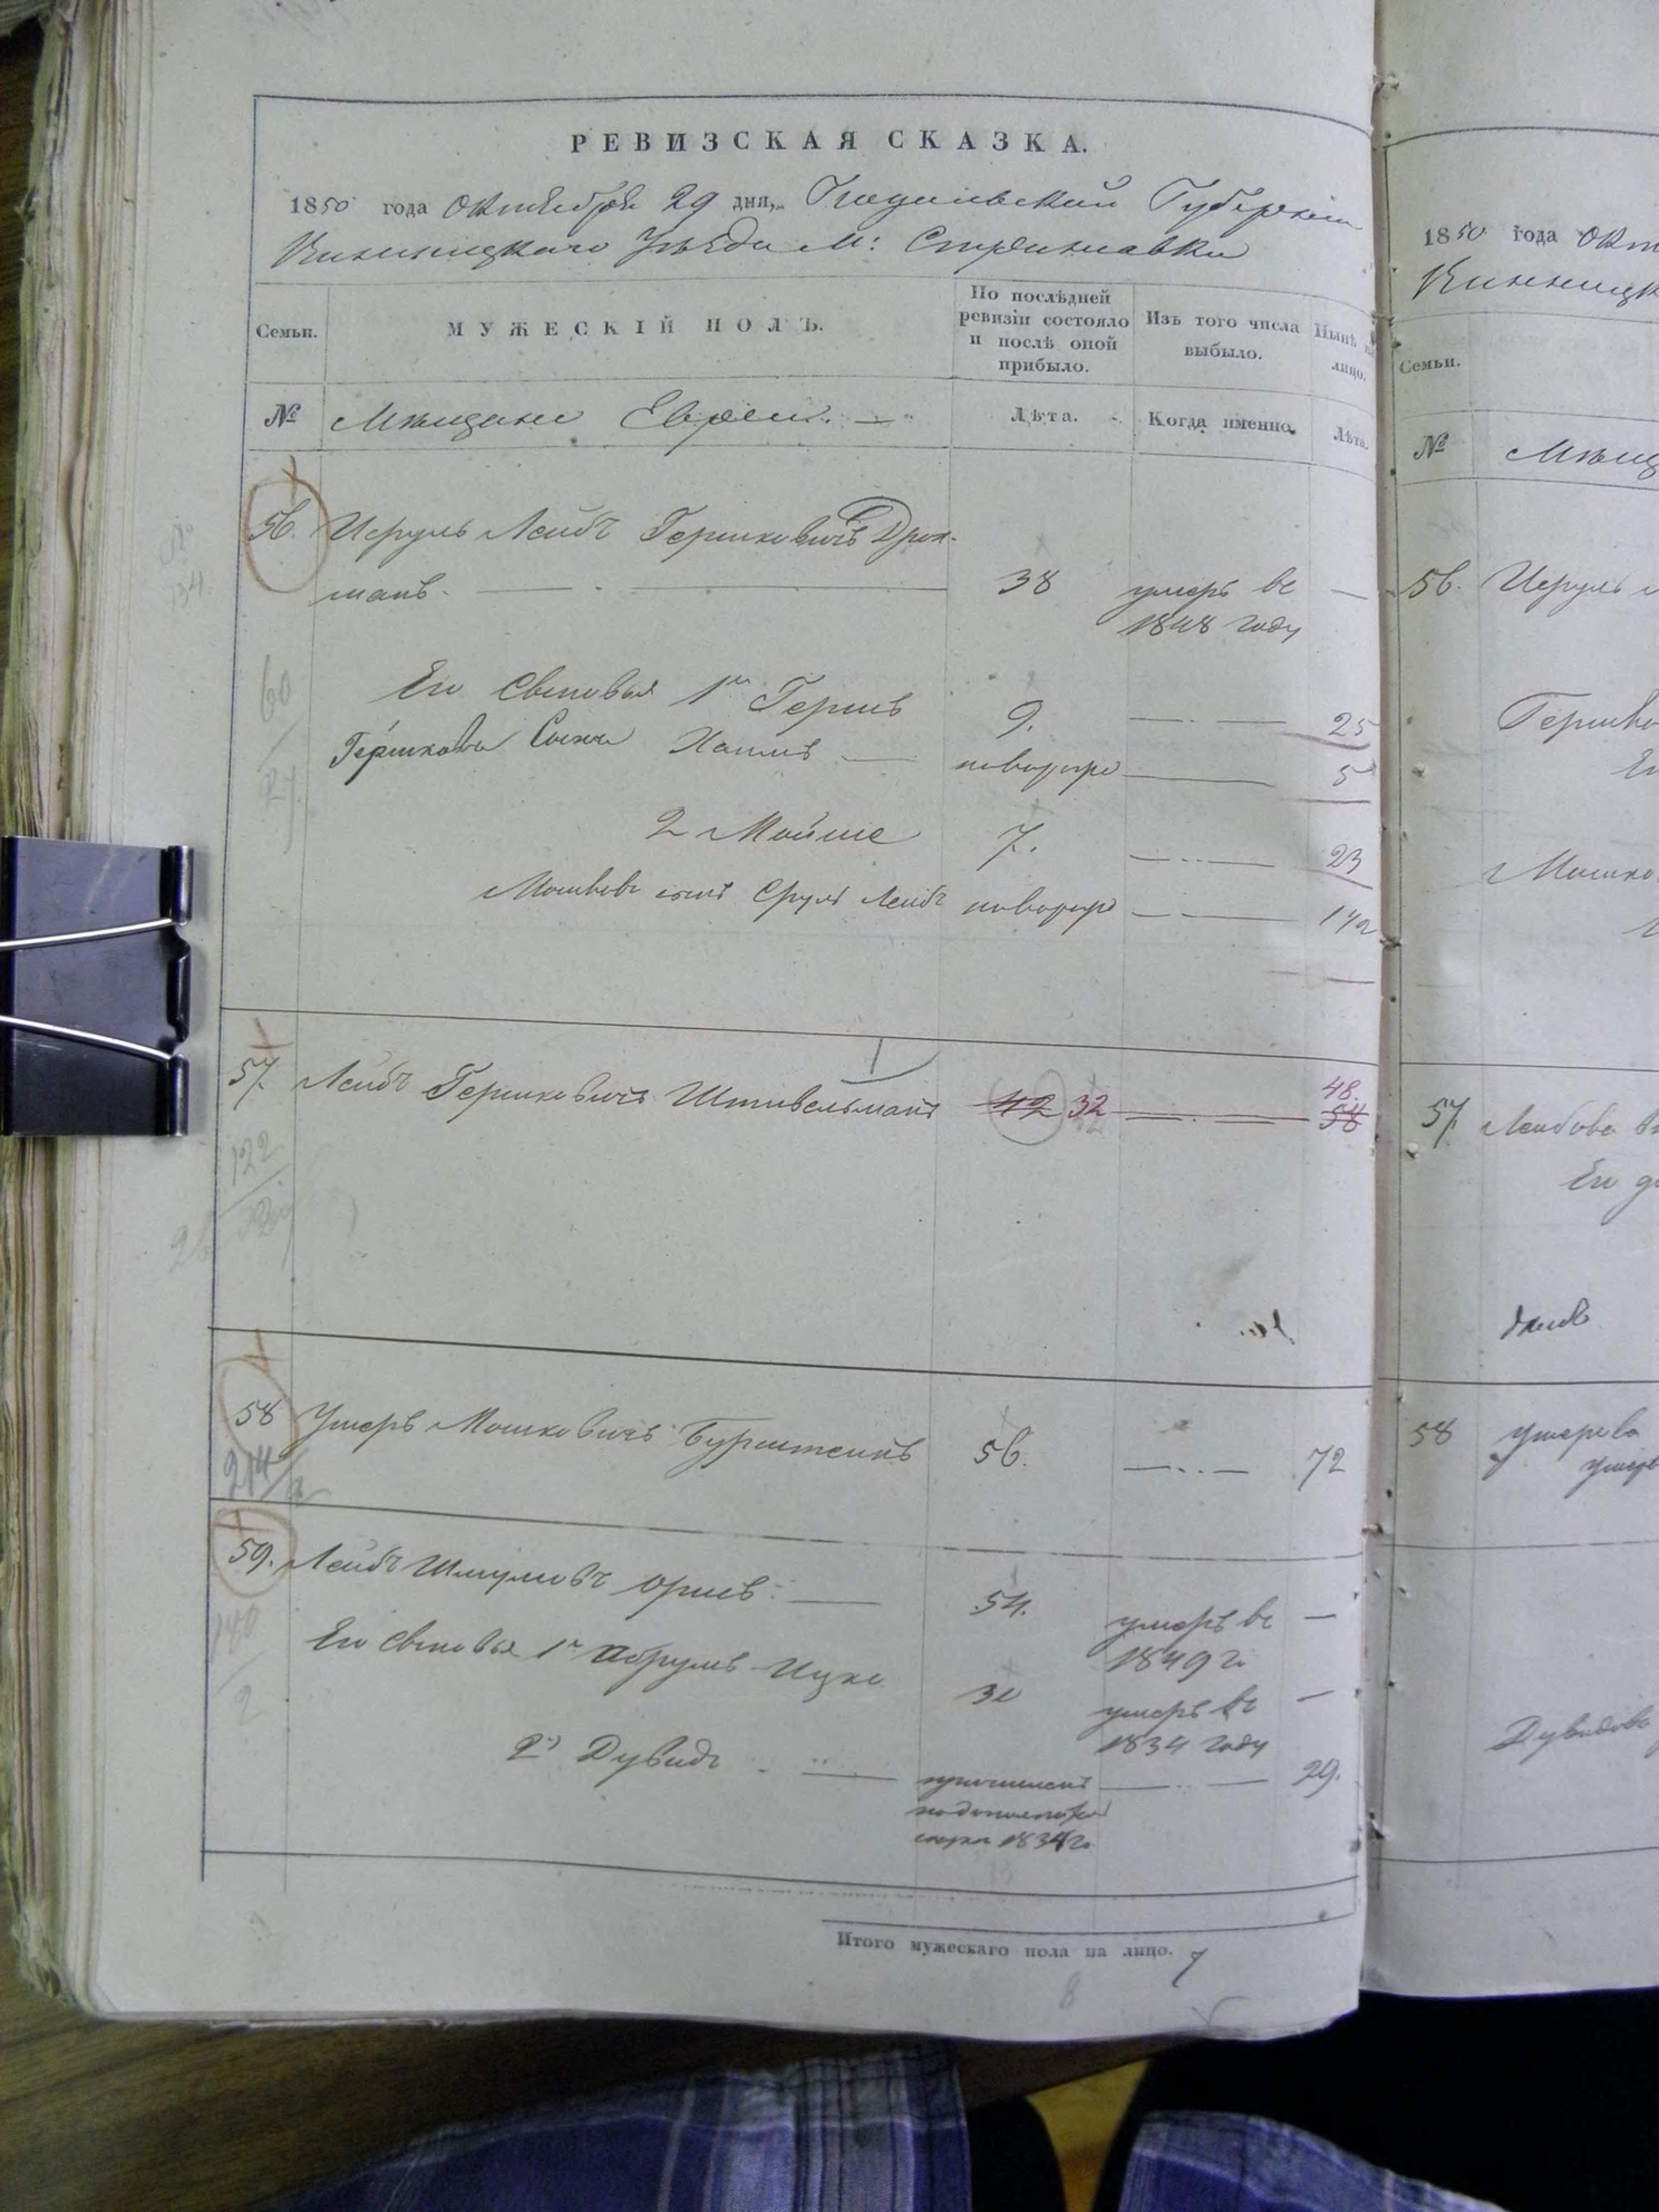 РЕВИЗСКАЯ СКАЗКА.
1850 года Октября 29 дня, Подольской Губернии
Винницкаго Уѣзда М: Стрижавки
Семьи.
МУЖЕСКІЙ ПОЛЪ.
По послѣдней ревизіи состояло и послѣ оной прибыло.
Изъ того числа выбыло.
Нынѣ на лицо.
№ Мѣщане Евреи. Лѣта. Когда именно. Лѣта.
56. Исруль Лейбъ Гершковичъ Дрох-
манъ. 38 умеръ въ —
1848 году
Его Сыновья 1й Гершъ 9. — 25
Гершкова Сына Хаимъ — новорож — 5
2 Мойше 7. — 23
Мошковъ сынъ Сруль Лейбъ новорож — 1 1/2
57. Лейбъ Гершковичъ Штивельманъ 42 32 — 48. 58
58 Умеръ Мошковичъ Бурштейнъ 56. — 72
214
59. Лейбъ Шмулевъ — 54. умеръ въ —
1849 г.
Его Сыновья 1й Абрумъ Ицко 30 умеръ въ —
1834 году
2й Дувидъ — — 29.
1834 г.
Итого мужескаго пола на лицо. 7
8
60
122
1850 года Окт
Винницк
Семьи.
№ Мѣщ
56. Исруль
Гершко
Ег
Мошко
57. Лейбова
Его д
58 Умерова
Умер
Дувидова